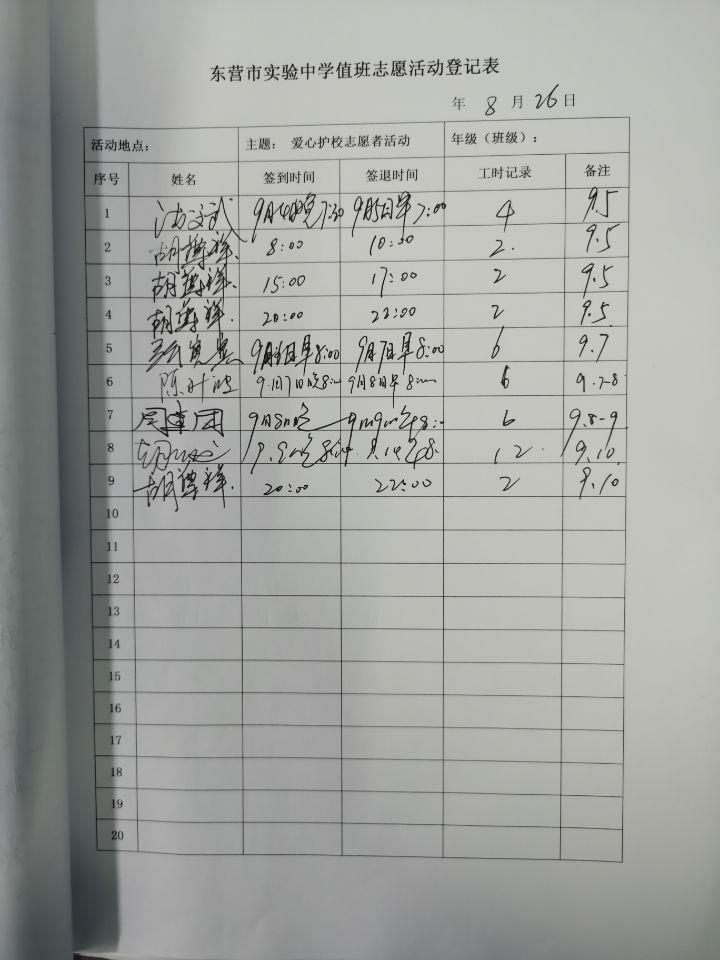 东营市实验中学值班志愿活动登记表
年 8 月 26 日
活动地点： 主题： 爱心护校志愿者活动 年级（班级）：
序号 姓名 签到时间 签退时间 工时记录 备注
1 9月4日晚7:30 9月5日早7:00 4 9.5
2 胡蓴祥 8:00 10:00 2 9.5
3 胡蓴祥 15:00 17:00 2 9.5
4 胡蓴祥 20:00 22:00 2 9.5
5 早8:00 9月7日早8:00 6 9.7
6 陈叶波 9月7日晚8:00 9月8日早8:00 6 9.7-8
7 9月8日晚 6 9.8-9
8 12 9.10
9 胡蓴祥 20:00 22:00 2 9.10
10
11
12
13
14
15
16
17
18
19
20